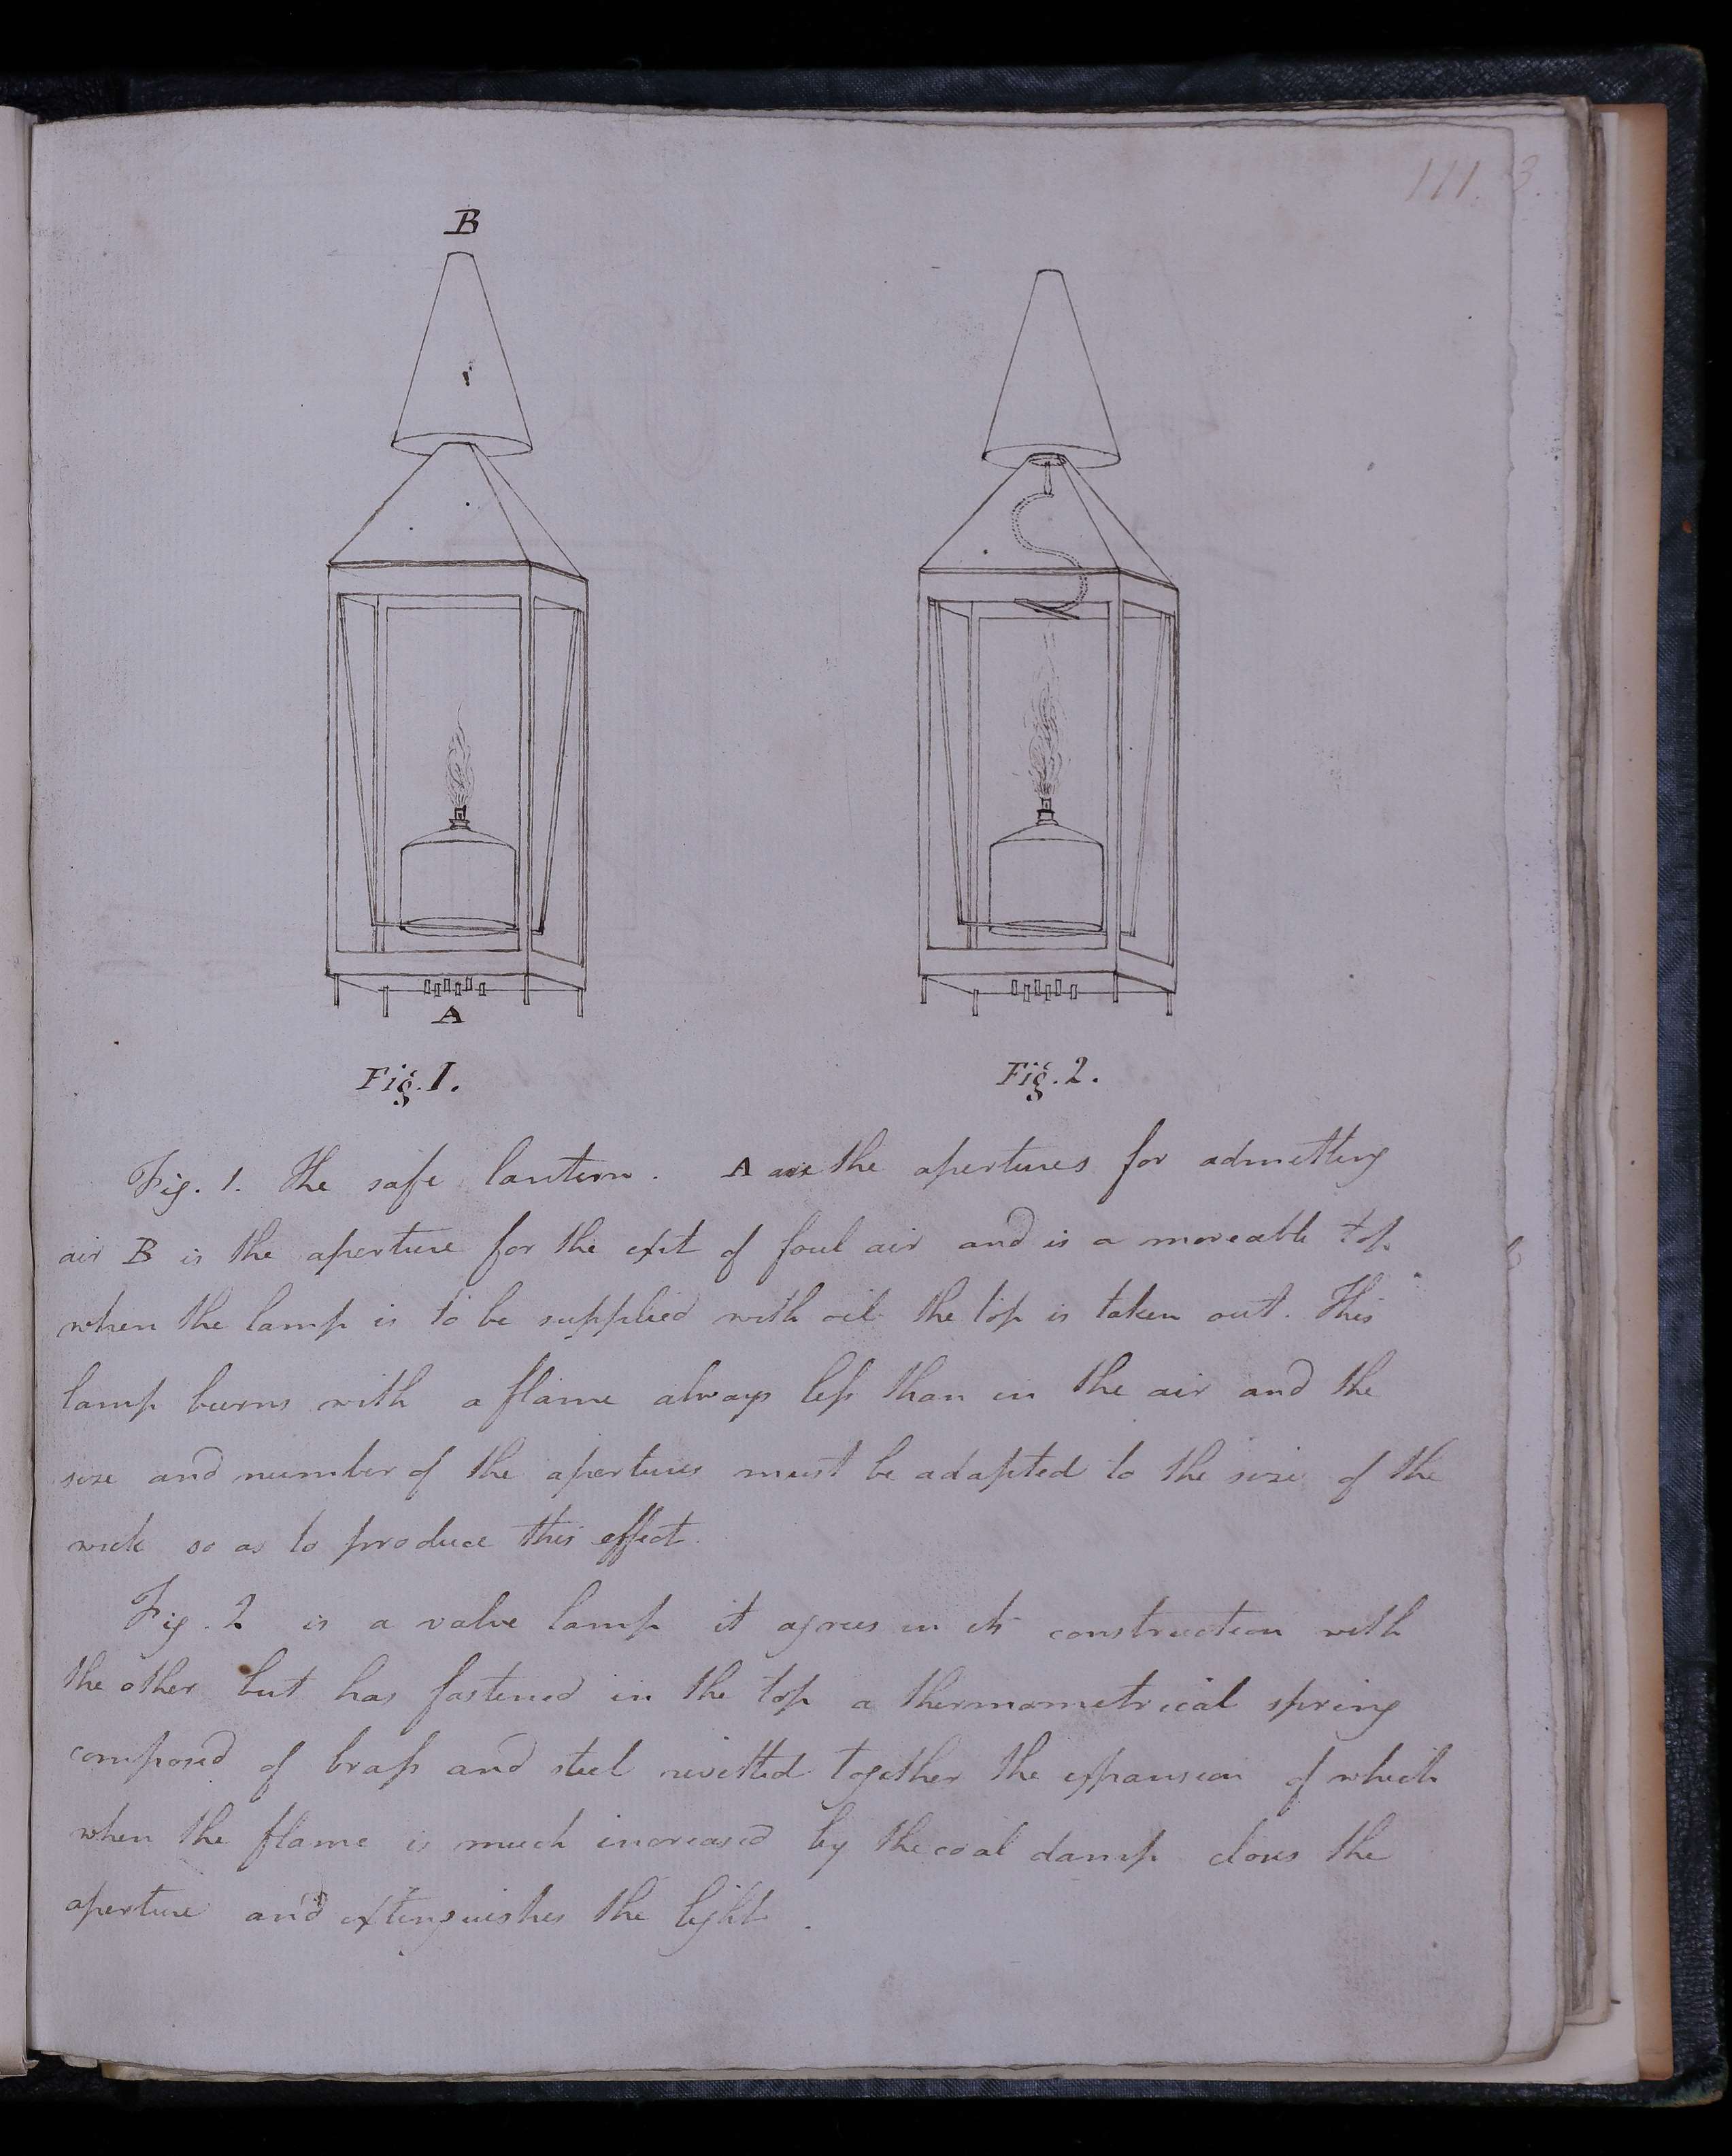 111. 3.
B
A
Fig. 1. Fig. 2.
Fig. 1. The safe lantern. A are the apertures for admitting
air B is the aperture for the exit of foul air and is a moveable top
when the lamp is to be supplied with oil the top is taken out. This
lamp burns with a flame always less than in the air and the
size and number of the apertures must be adapted to the size of the
wick so as to produce this effect.
Fig. 2 is a valve lamp it agrees in its construction with
the other but has fastened in the top a thermometrical spring
composed of brass and steel rivetted together the expansion of which
when the flame is much increased by the coal damp closes the
aperture and extinguishes the light.